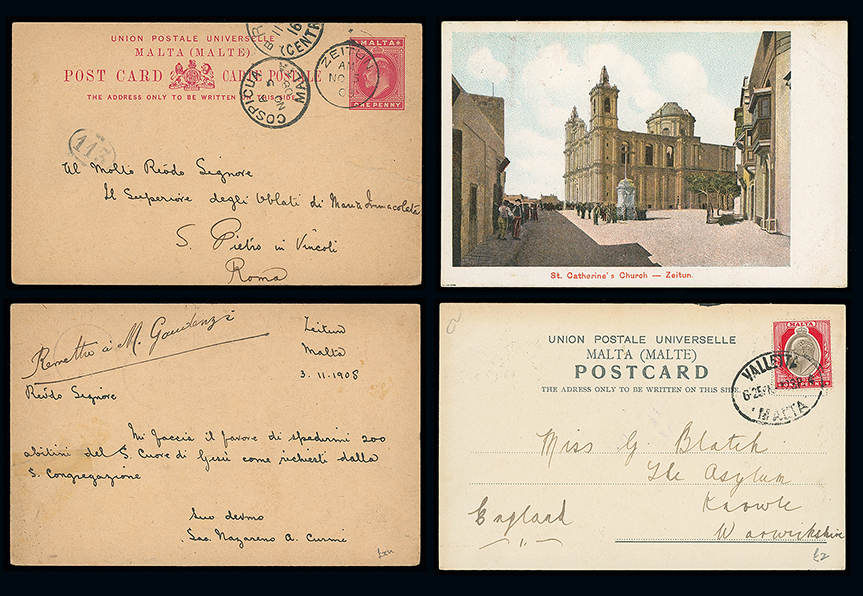 UNION POSTALE UNIVERSELLE
MALTA (MALTE)
POST CARD CARTE POSTALE
THE ADDRESS ONLY TO BE WRITTEN ON THIS SIDE
MALTA
ONE PENNY
ZEITUN
AM
NO 3
COSPICUA
MALTA
(CENTR
113
Al Molto Revdo Signore
Il Superiore degli Oblati di Maria Immacolata
S. Pietro in Vincoli
Roma
St. Catherine's Church — Zeitun.
Remettre à M. Gaudenzi
Zeitun
Malta
3.11.1908
Revdo Signore
Mi faccia il favore di spedirmi 200
abitini del S. Cuore di Gesù come richiesti dalla
S. Congregazione
Suo devmo
Sac. Nazareno A. Curmi
UNION POSTALE UNIVERSELLE
MALTA (MALTE)
POSTCARD
THE ADRESS ONLY TO BE WRITTEN ON THIS SIDE.
MALTA
VALLETTA
MALTA
Miss G. Blatch
The Asylum
Knowle
England
Warwickshire
£2